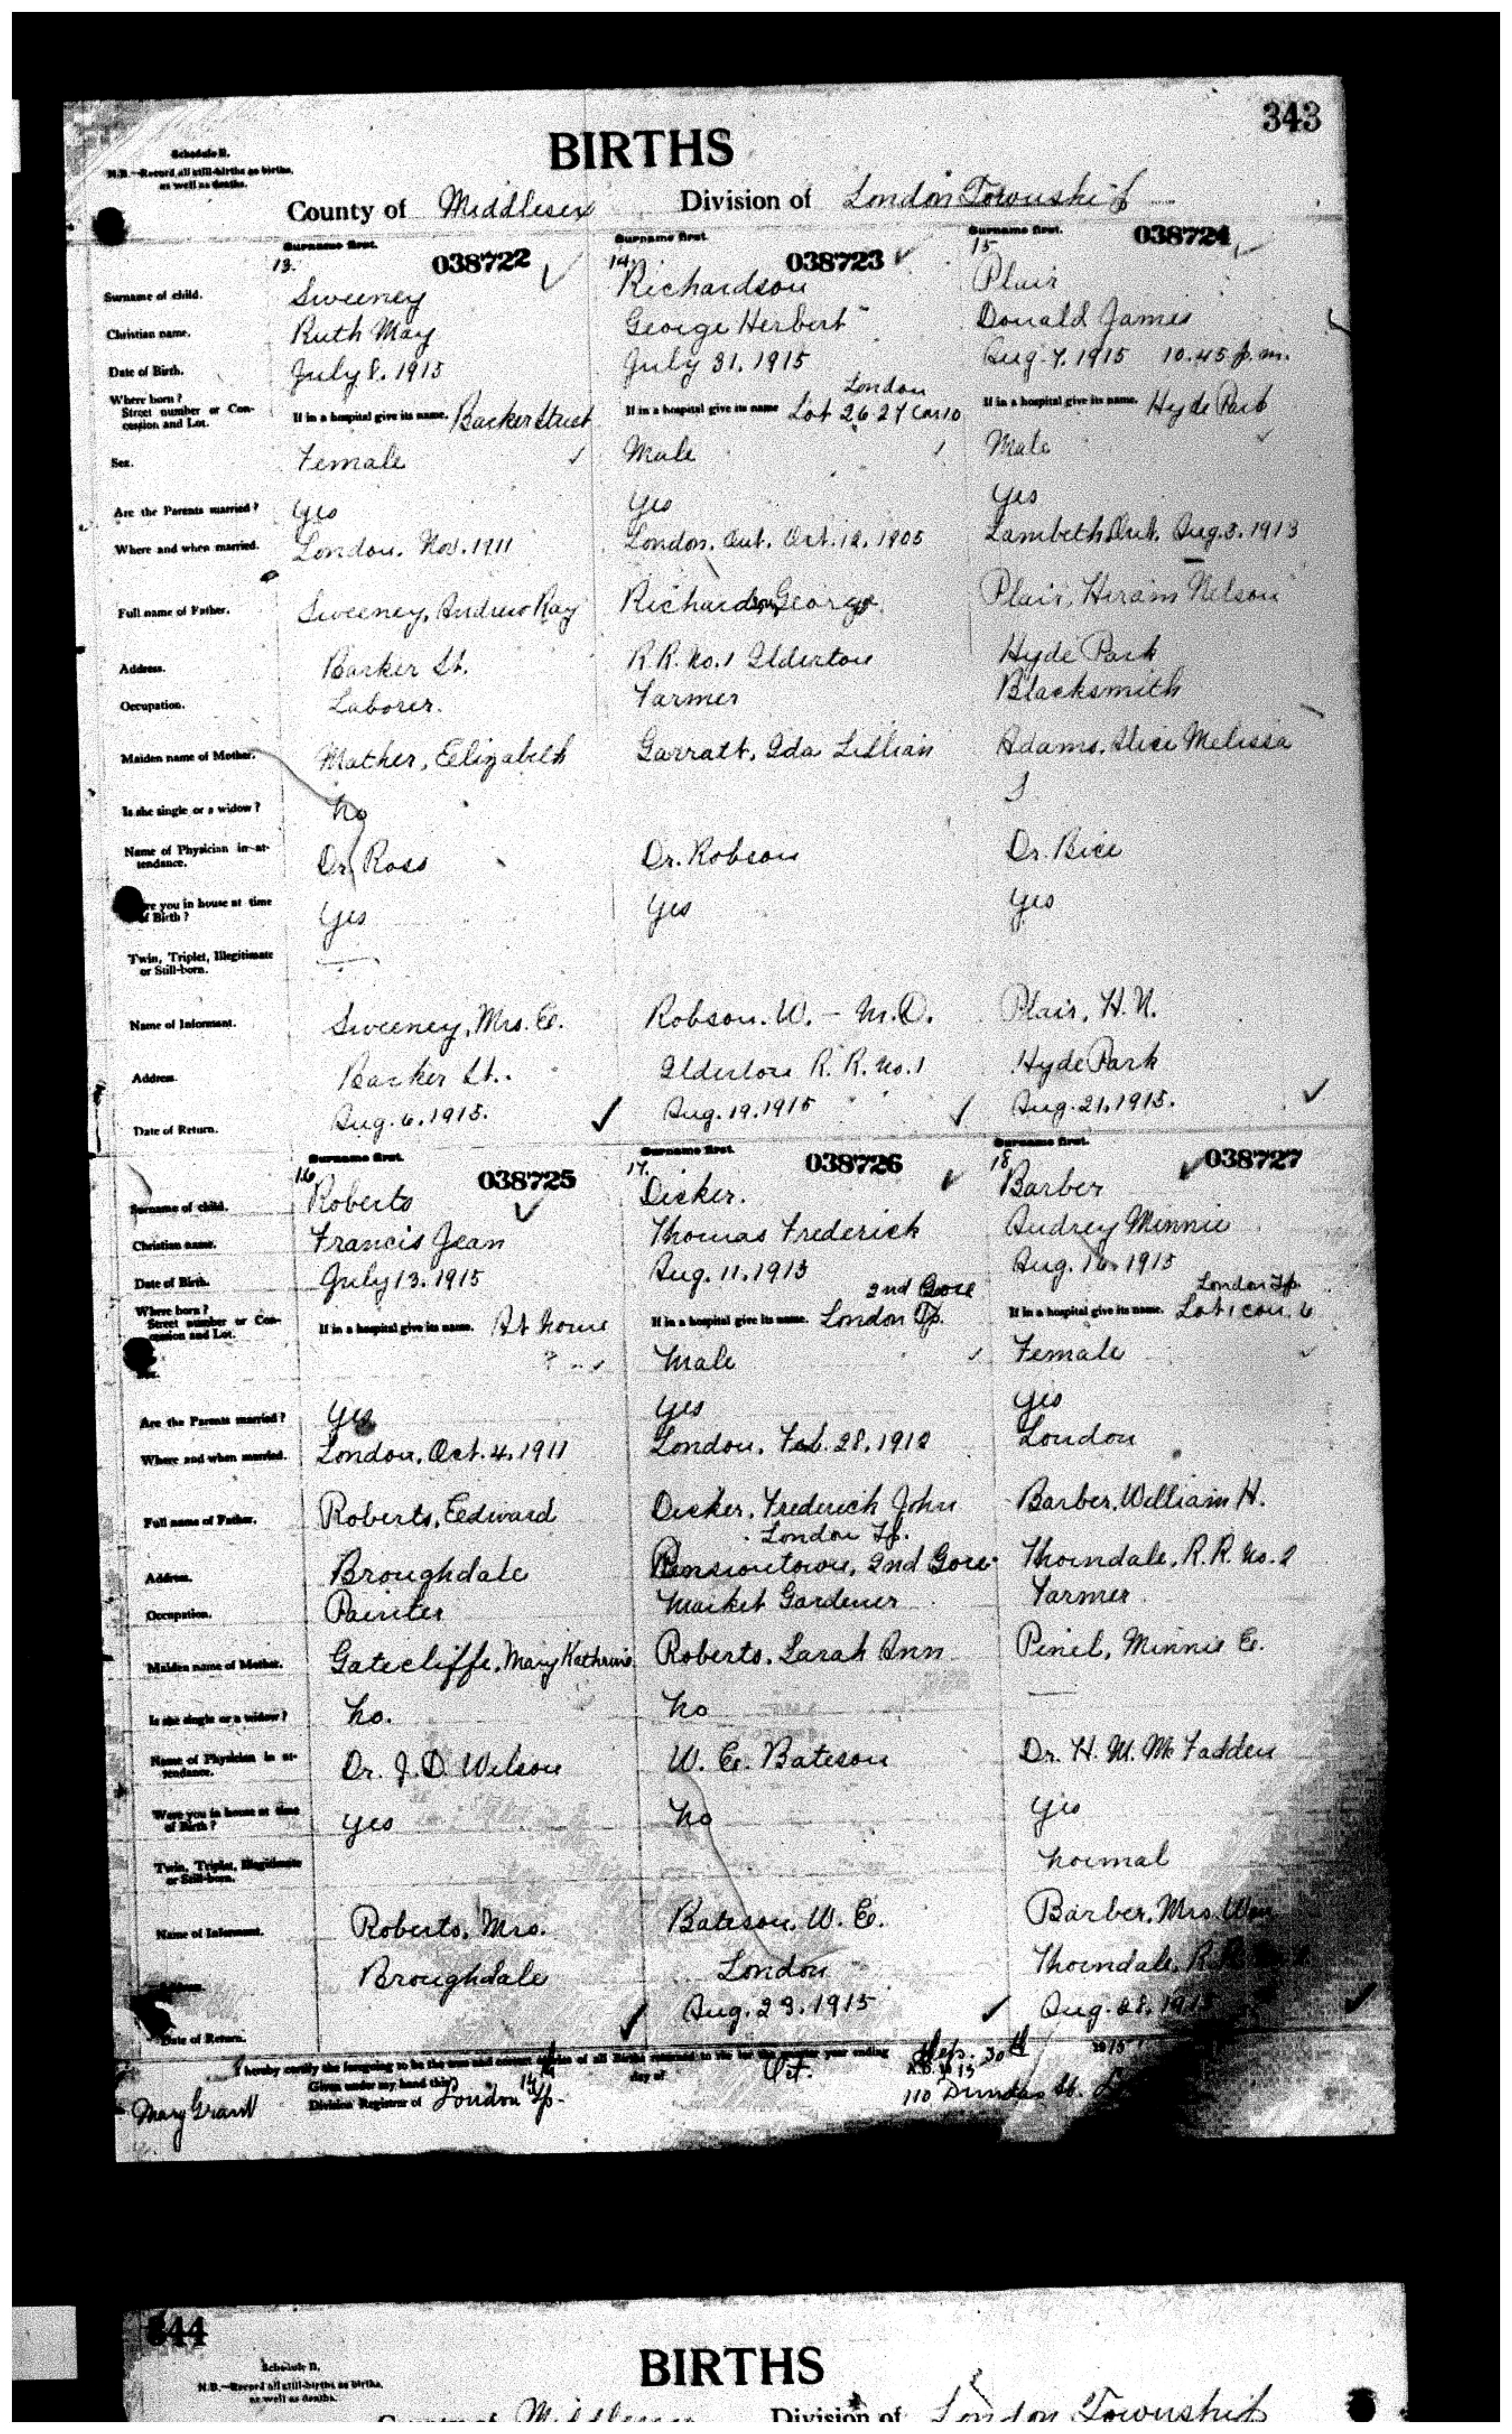 343
Schedule B.
N.B.—Record all still-births as births,
as well as deaths.
BIRTHS
County of Middlesex Division of London Township
Surname first. Surname first. Surname first.
13. 038722 14. 038723 15 038724
Surname of child. Sweeney Richardson Plair
Christian name. Ruth May George Herbert Donald James
Date of Birth. July 8. 1915 July 31. 1915 Aug. 7. 1915 10.45 p.m.
Where born? London
Street number or Con- If in a hospital give its name. Barker Street If in a hospital give its name Lot 26 27 Con 10 If in a hospital give its name. Hyde Park
cession and Lot.
Sex. Female Male Male
Are the Parents married? Yes Yes Yes
Where and when married. London. Nov. 1911 London. Ont. Oct. 12. 1905 Lambeth Ont. Aug. 5. 1913
Full name of Father. Sweeney, Andrew Ray Richardson, George Plair, Hiram Nelson
Address. Barker St. R.R. No. 1 Ilderton Hyde Park
Occupation. Laborer. Farmer Blacksmith
Maiden name of Mother. Mather, Elizabeth Garratt, Ida Lillian Adams, Alice Melissa
Is she single or a widow? No S
Name of Physician in at- Dr. Ross Dr. Robson Dr. Bice
tendance.
Were you in house at time Yes Yes Yes
of Birth?
Twin, Triplet, Illegitimate —
or Still-born.
Name of Informant. Sweeney, Mrs. E. Robson. W. — M.D. Plair, H. N.
Address. Barker St. Ilderton R. R. No. 1 Hyde Park
Date of Return. Aug. 6. 1915. Aug. 19. 1915 Aug. 21. 1915.
Surname first. Surname first. Surname first.
16 038725 17. 038726 18 038727
Surname of child. Roberts Dicker. Barber
Christian name. Francis Jean Thomas Frederick Audrey Minnie
Date of Birth. July 13. 1915 Aug. 11. 1915 Aug. 16. 1915
Where born? 2nd Gore London Tp.
Street number or Con- If in a hospital give its name. At home If in a hospital give its name. London Tp. If in a hospital give its name. Lot 1 con. 6
cession and Lot.
Sex. ? Male Female
Are the Parents married? Yes Yes Yes
Where and when married. London, Oct. 4. 1911 London. Feb. 28. 1912 London
Full name of Father. Roberts, Edward Dicker, Frederick John Barber, William H.
London Tp.
Address. Broughdale Pensiontown, 2nd Gore Thorndale, R.R. No. 2
Occupation. Painter Market Gardener Farmer
Maiden name of Mother. Gatecliffe, Mary Kathrine Roberts, Sarah Ann Penel, Minnie E.
Is she single or a widow? No. No —
Name of Physician in at- Dr. J. D. Wilson W. E. Bateson Dr. H. W. McFadden
tendance.
Were you in house at time Yes No Yes
of Birth?
Twin, Triplet, Illegitimate Normal
or Still-born.
Name of Informant. Roberts, Mrs. Bateson, W. E. Barber, Mrs. Wm
Address. Broughdale London Thorndale, R.R.
Date of Return. Aug. 23. 1915 Aug. 28. 1915
I hereby certify the foregoing to be the true and correct copies of all Births returned to me for the quarter year ending Sep. 30th 1915
Given under my hand this 14th day of Oct. A.D. 1915
Mary Grant Division Registrar of London Tp. 110 Dundas St.
344
Schedule B.
N.B.—Record all still-births as births,
as well as deaths.
BIRTHS
County of Middlesex Division of London Township